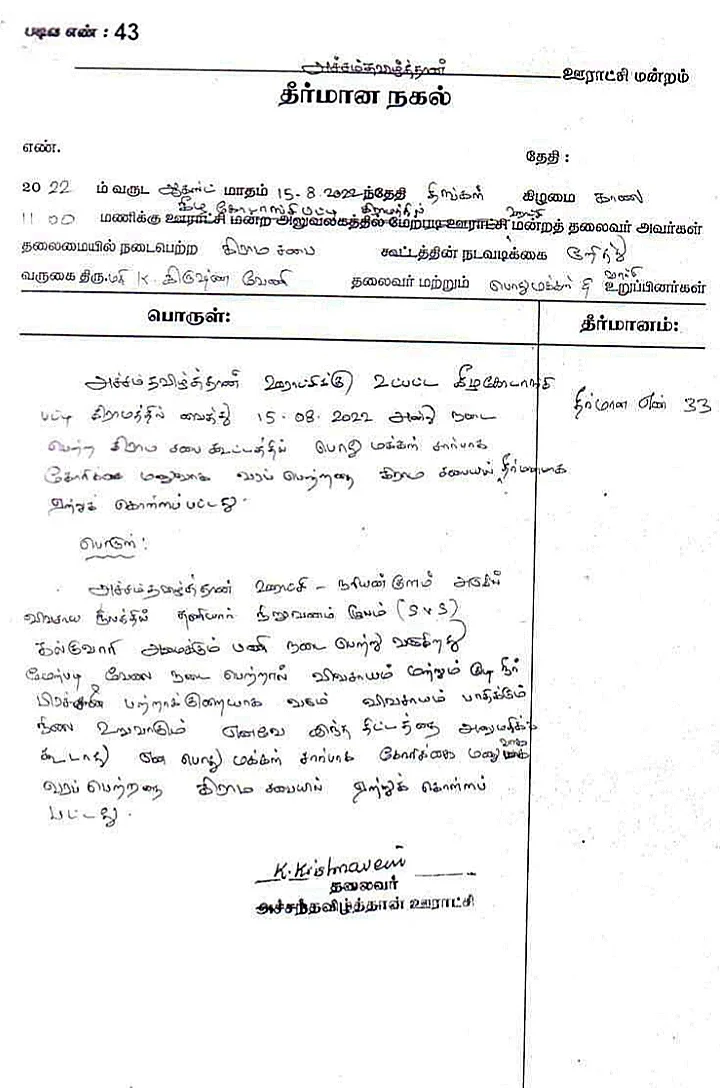 படிவ எண் : 43
அச்சம்தவிழ்த்தான் ஊராட்சி மன்றம்
தீர்மான நகல்
எண்.
தேதி :
2022 ம் வருட ஆகஸ்ட் மாதம் 15-8.2022ந்தேதி திங்கள் கிழமை காலை
கீழ கோடாங்கிபட்டி கிராமத்தில் ஊராட்சி
11 00 மணிக்கு ஊராட்சி மன்ற அலுவலகத்தில் மேற்படி ஊராட்சி மன்றத் தலைவர் அவர்கள்
தலைமையில் நடைபெற்ற கிராம சபை கூட்டத்தின் நடவடிக்கை
வருகை திரு.மதி K. கிருஷ்ண வேணி தலைவர் மற்றும் பொதுமக்கள் & வார்டு உறுப்பினர்கள்
பொருள்:
தீர்மானம்:
அச்சம்தவிழ்த்தான் ஊராட்சிக்கு உட்பட்ட கீழகோடாங்கி
தீர்மான எண் 33
பட்டி கிராமத்தில் வைத்து 15-08-2022 அன்று நடை
பெற்ற கிராம சபை கூட்டத்தில் பொது மக்கள் சார்பாக
கோரிக்கை மனுவாக வரப் பெற்றதை கிராம சபையில் தீர்மானமாக
ஏற்றுக் கொள்ளப் பட்டது.
பொருள்:
அச்சம்தவிழ்த்தான் ஊராட்சி - நரியன்குளம் அருகில்
விவசாய நிலத்தில் தனியார் நிறுவனம் மூலம் (SVS)
கல்குவாரி அமைக்கும் பணி நடை பெற்று வருகிறது
மேற்படி வேலை நடை பெற்றால் விவசாயம் மற்றும் குடி நீர்
பிரச்சனை பற்றாக்குறையாக வரும் விவசாயம் பாதிக்கும்
நிலை உருவாகும் எனவே இந்த திட்டத்தை அனுமதிக்க
கூடாது என பொது மக்கள் சார்பாக கோரிக்கை மனுவாக
வரப் பெற்றதை கிராம சபையில் ஏற்றுக் கொள்ளப்
பட்டது.
K. Krishnaveni
தலைவர்
அச்சந்தவிழ்த்தான் ஊராட்சி